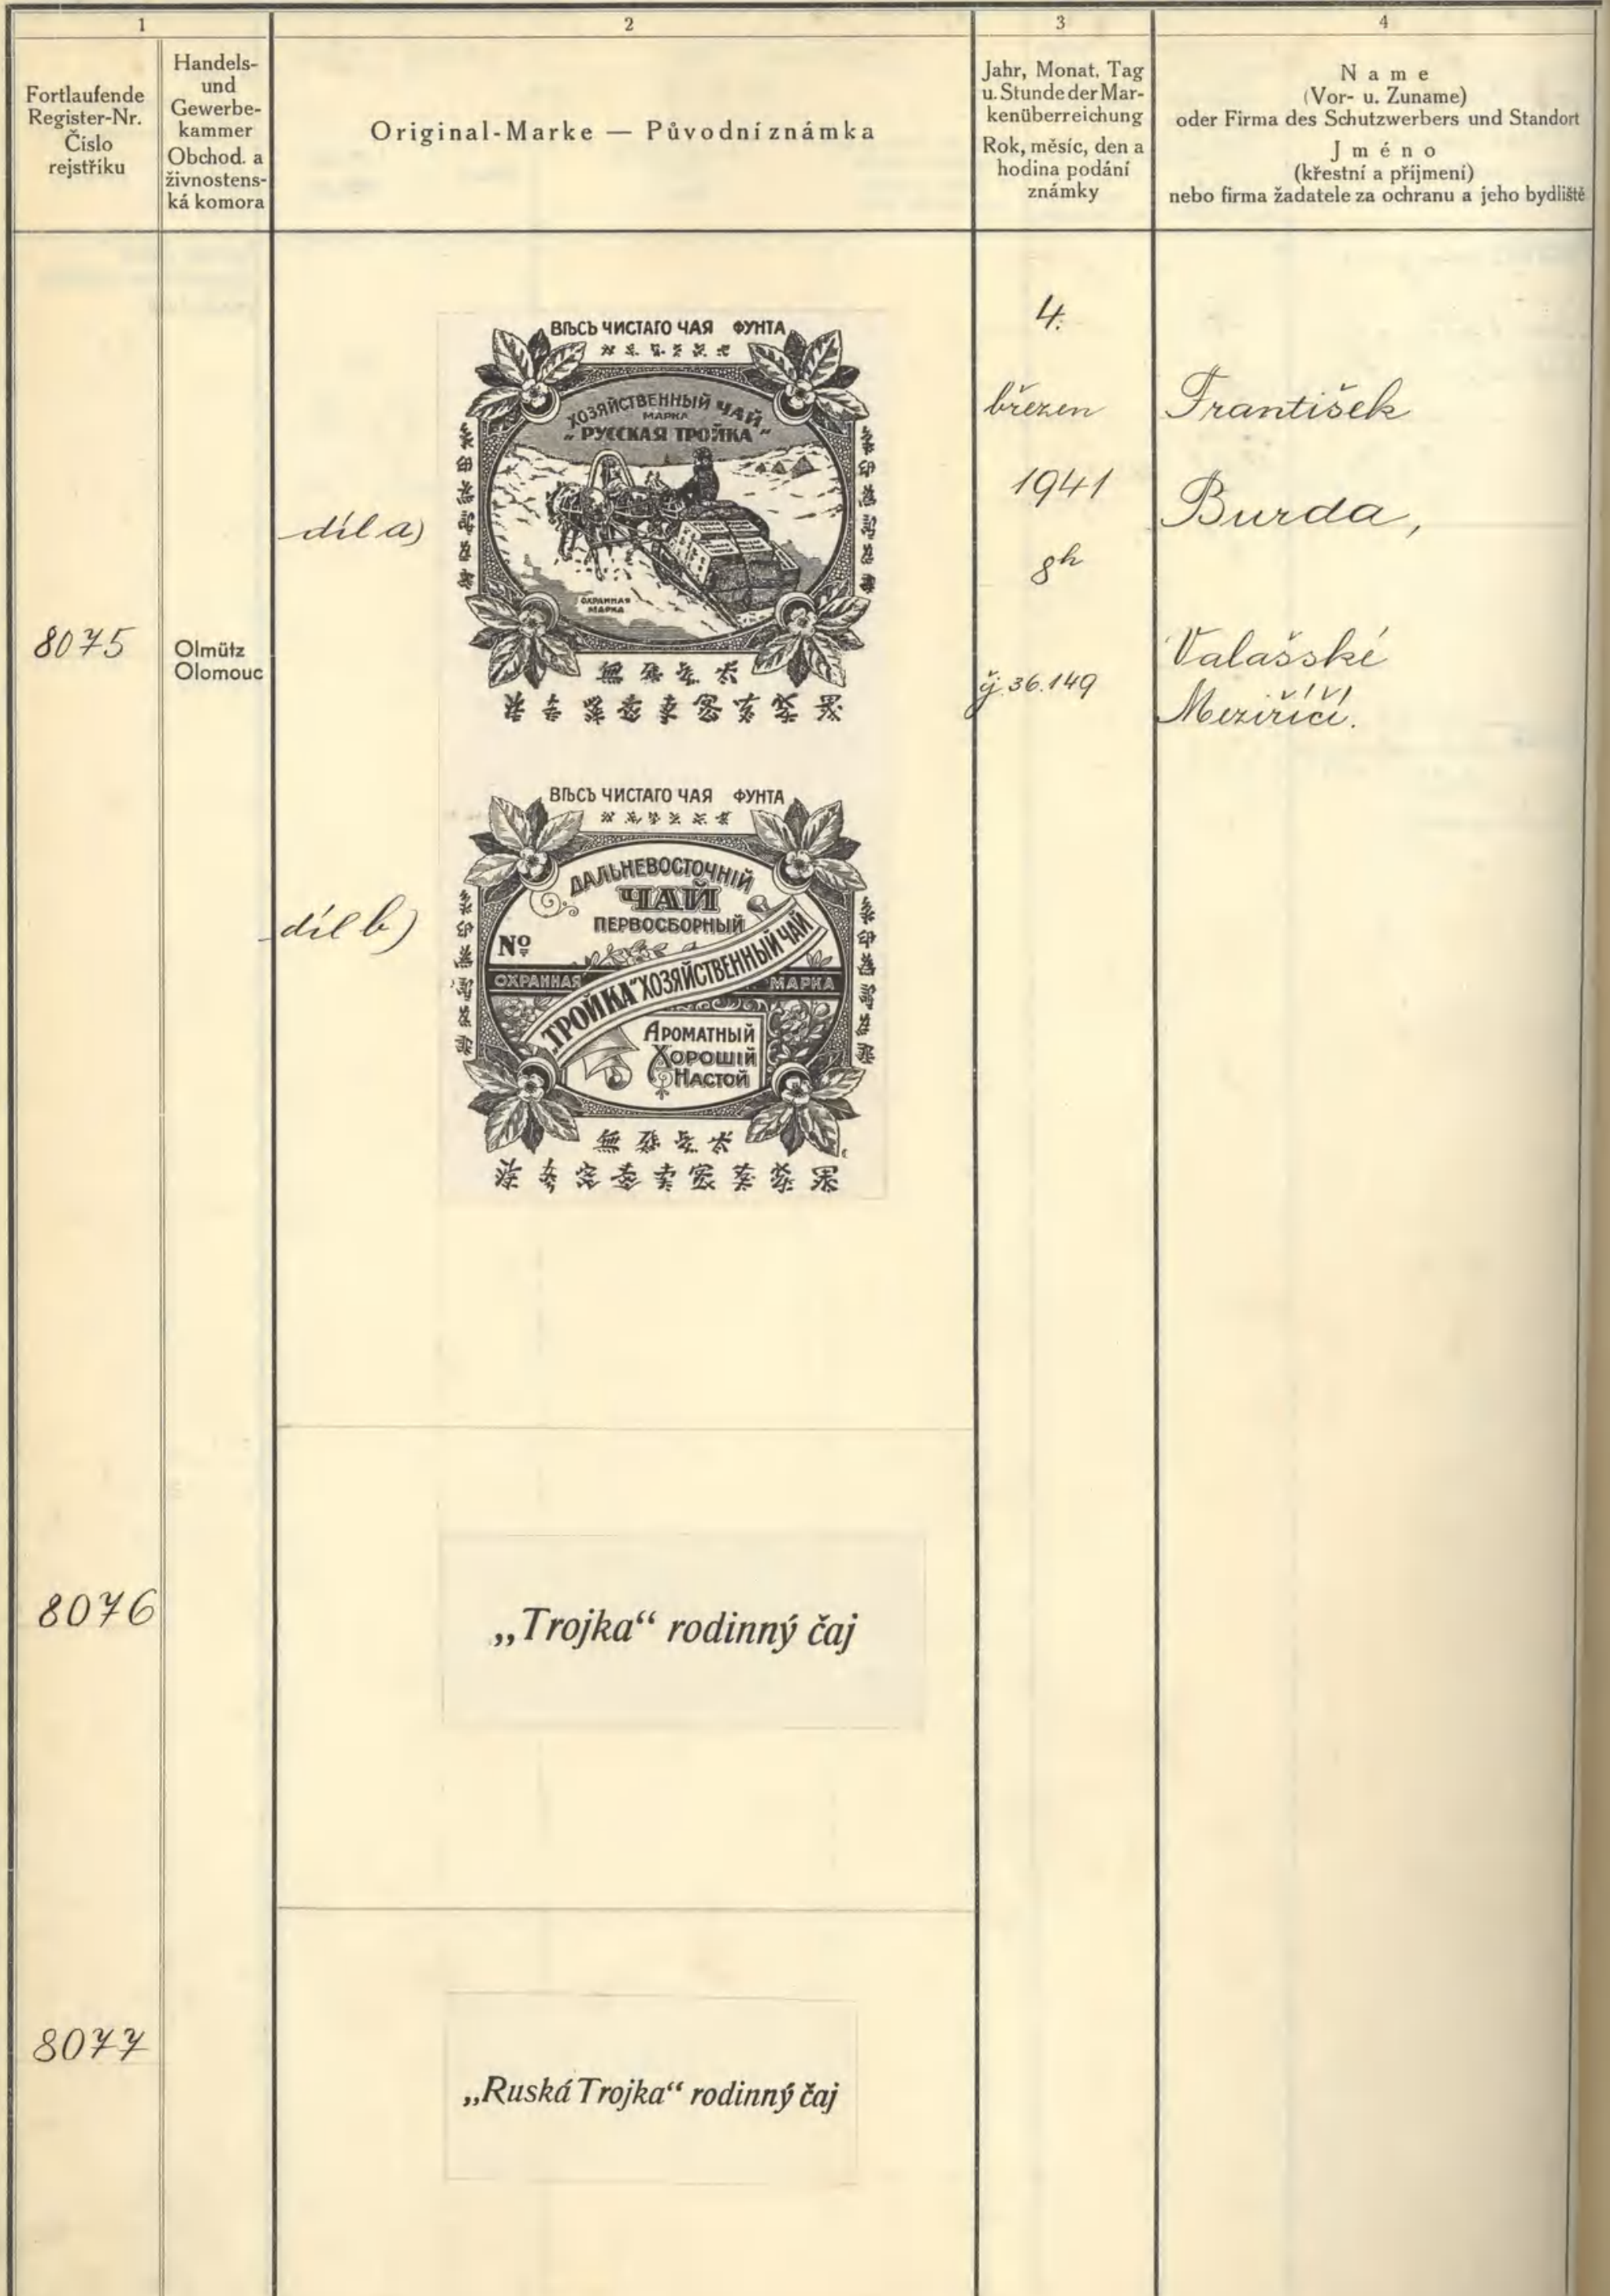 1
2
3
4
Fortlaufende
Register-Nr.
Číslo
rejstříku
Handels-
und
Gewerbe-
kammer
Obchod. a
živnostens-
ká komora
Original-Marke — Původní známka
Jahr, Monat, Tag
u. Stunde der Mar-
kenüberreichung
Rok, měsíc, den a
hodina podání
známky
Name
(Vor- u. Zuname)
oder Firma des Schutzwerbers und Standort
Jméno
(křestní a příjmení)
nebo firma žadatele za ochranu a jeho bydliště
8075
Olmütz
Olomouc
díl a)
ВѢСЬ ЧИСТАГО ЧАЯ ФУНТА
ХОЗЯЙСТВЕННЫЙ ЧАЙ
МАРКА
„РУССКАЯ ТРОЙКА"
ОХРАННАЯ
МАРКА
díl b)
ВѢСЬ ЧИСТАГО ЧАЯ ФУНТА
ДАЛЬНЕВОСТОЧНІЙ
ЧАЙ
ПЕРВОСБОРНЫЙ
№
„ТРОЙКА" ХОЗЯЙСТВЕННЫЙ ЧАЙ
ОХРАННАЯ МАРКА
АРОМАТНЫЙ
ХОРОШІЙ
НАСТОЙ
4.
březen
1941
8h
čj. 36.149
František
Burda,
Valašské
Meziříčí.
8076
„Trojka“ rodinný čaj
8077
„Ruská Trojka“ rodinný čaj